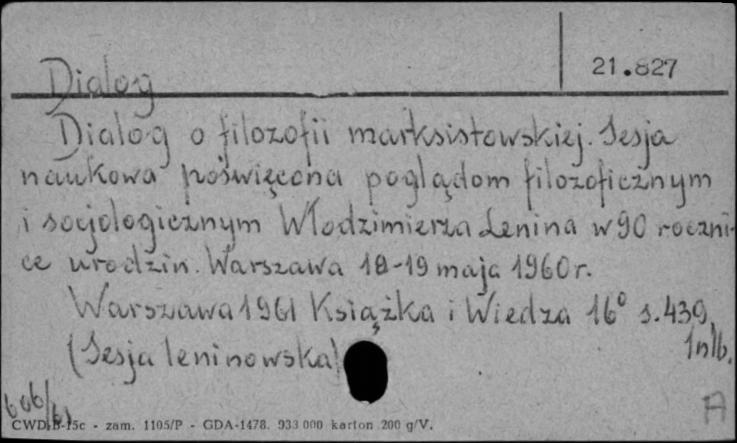 21.827
Dialog
Dialog o filozofii marksistowskiej. Sesja
naukowa poświęcona poglądom filozoficznym
i socjologicznym Włodzimierza Lenina w 90 roczni-
ce urodzin. Warszawa 18-19 maja 1960r.
Warszawa 1961 Książka i Wiedza 16° s. 439,
1 nlb.
(Sesja leninowska)
A
CWD-B-15c - zam. 1105/P - GDA-1478. 933 000 karton 200 g/V.